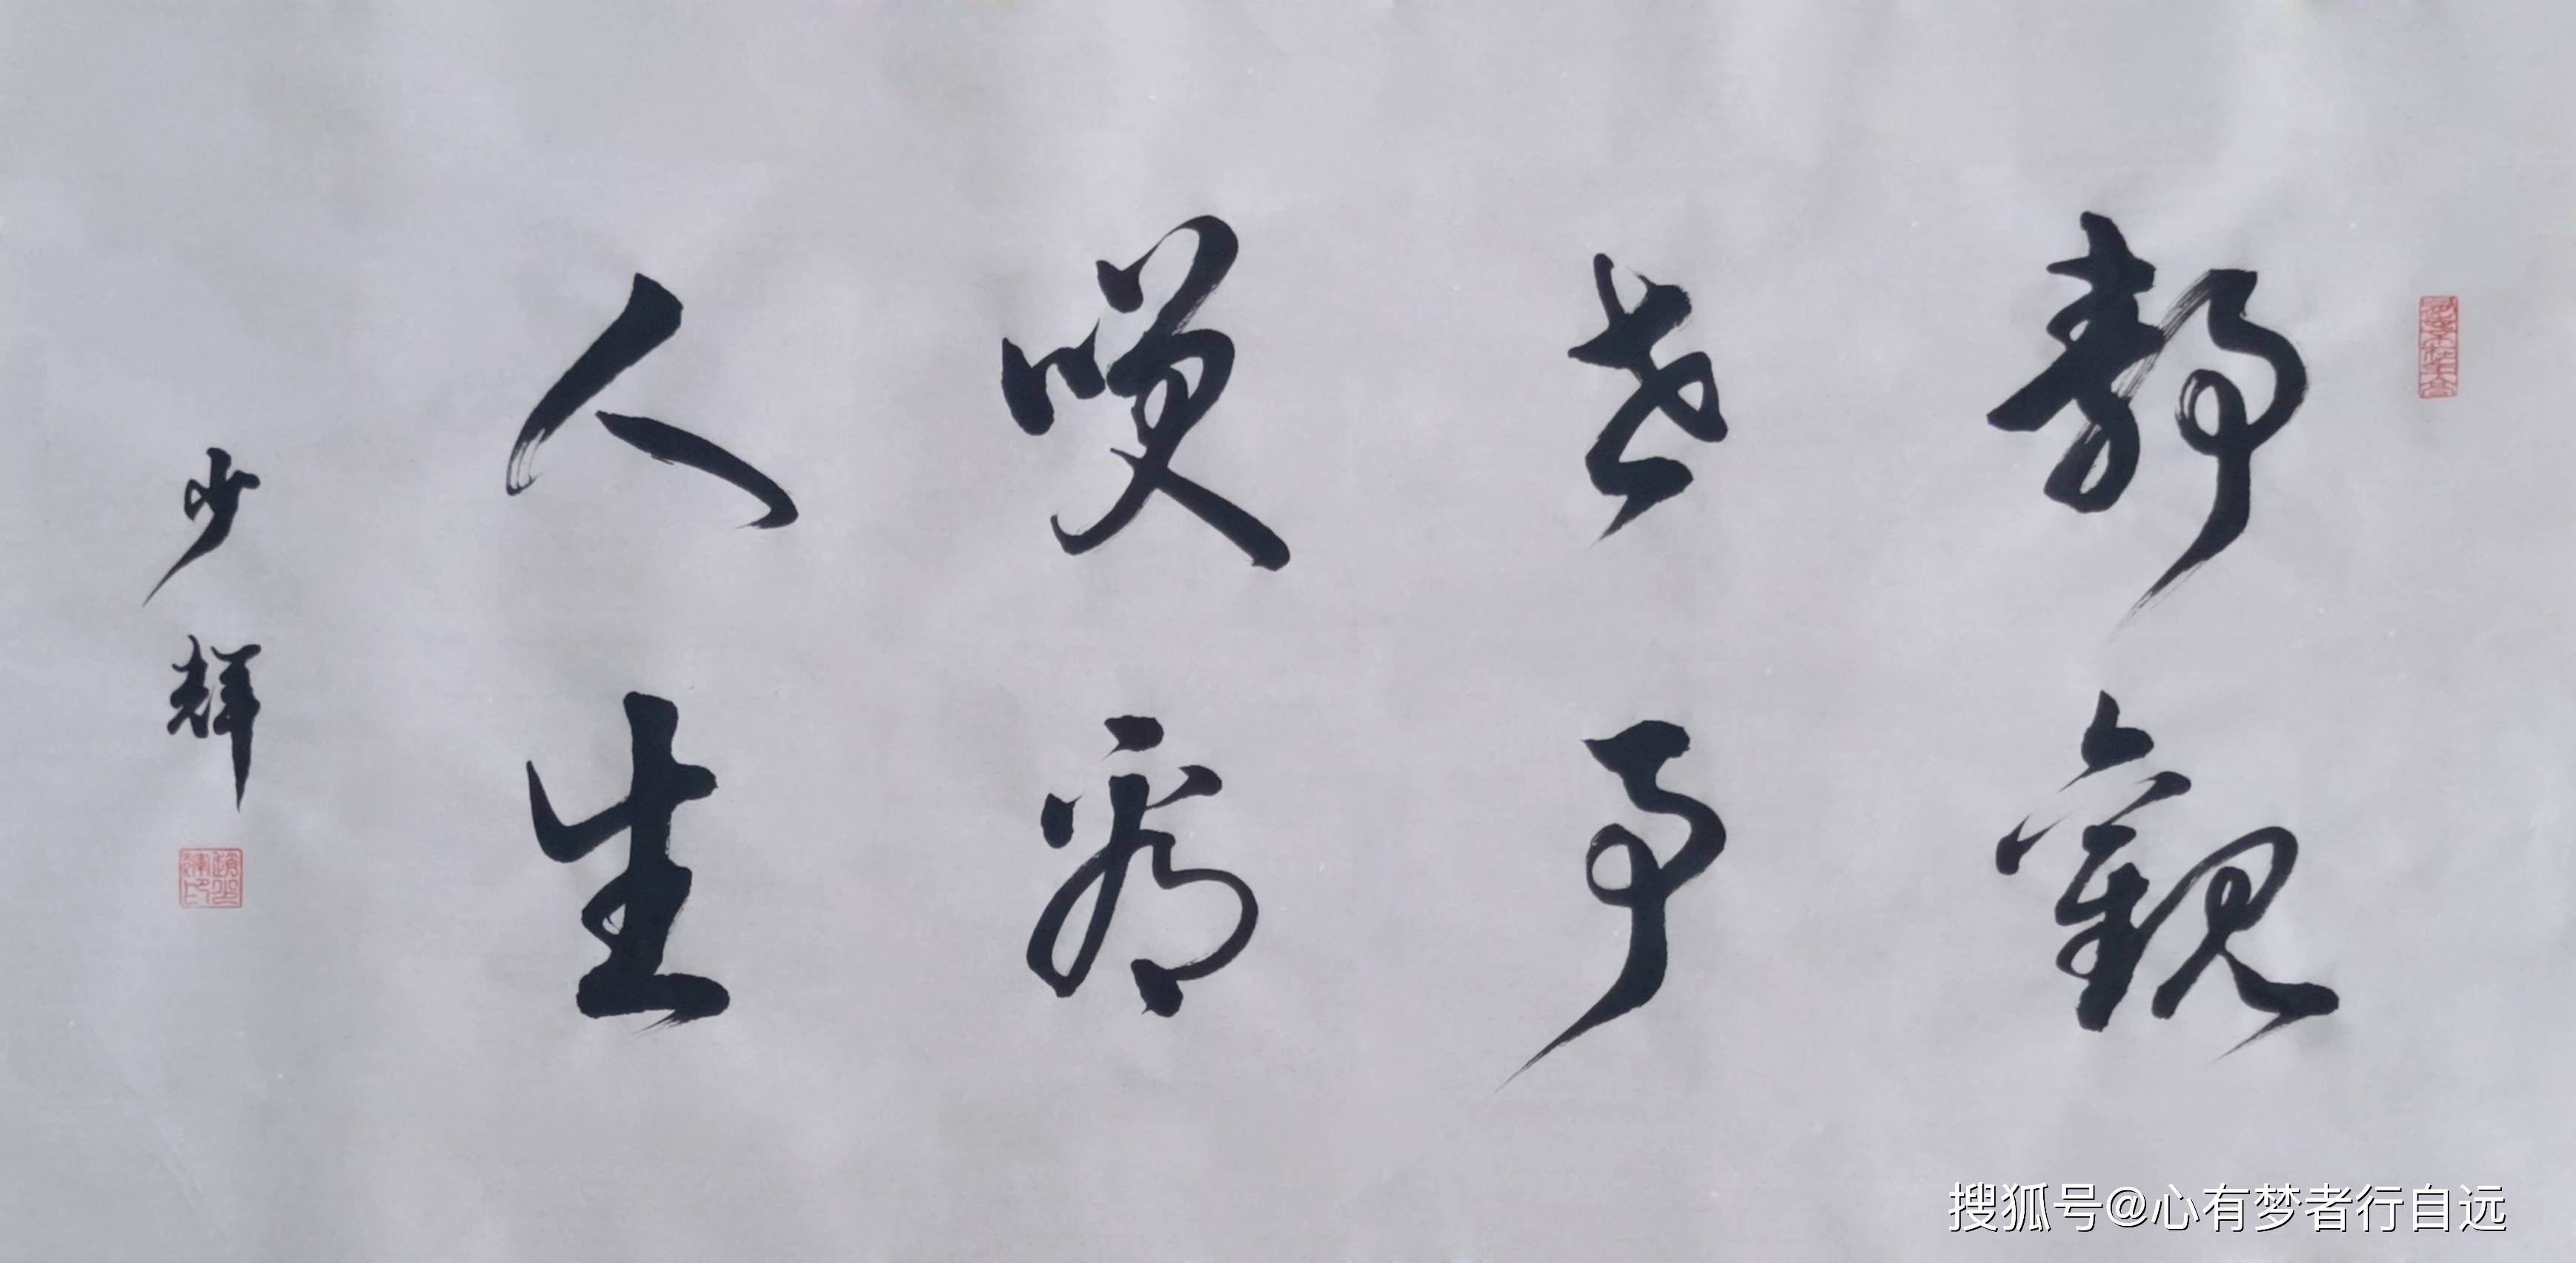 静觀
世事
咲看
人生
少輝
搜狐号@心有梦者行自远